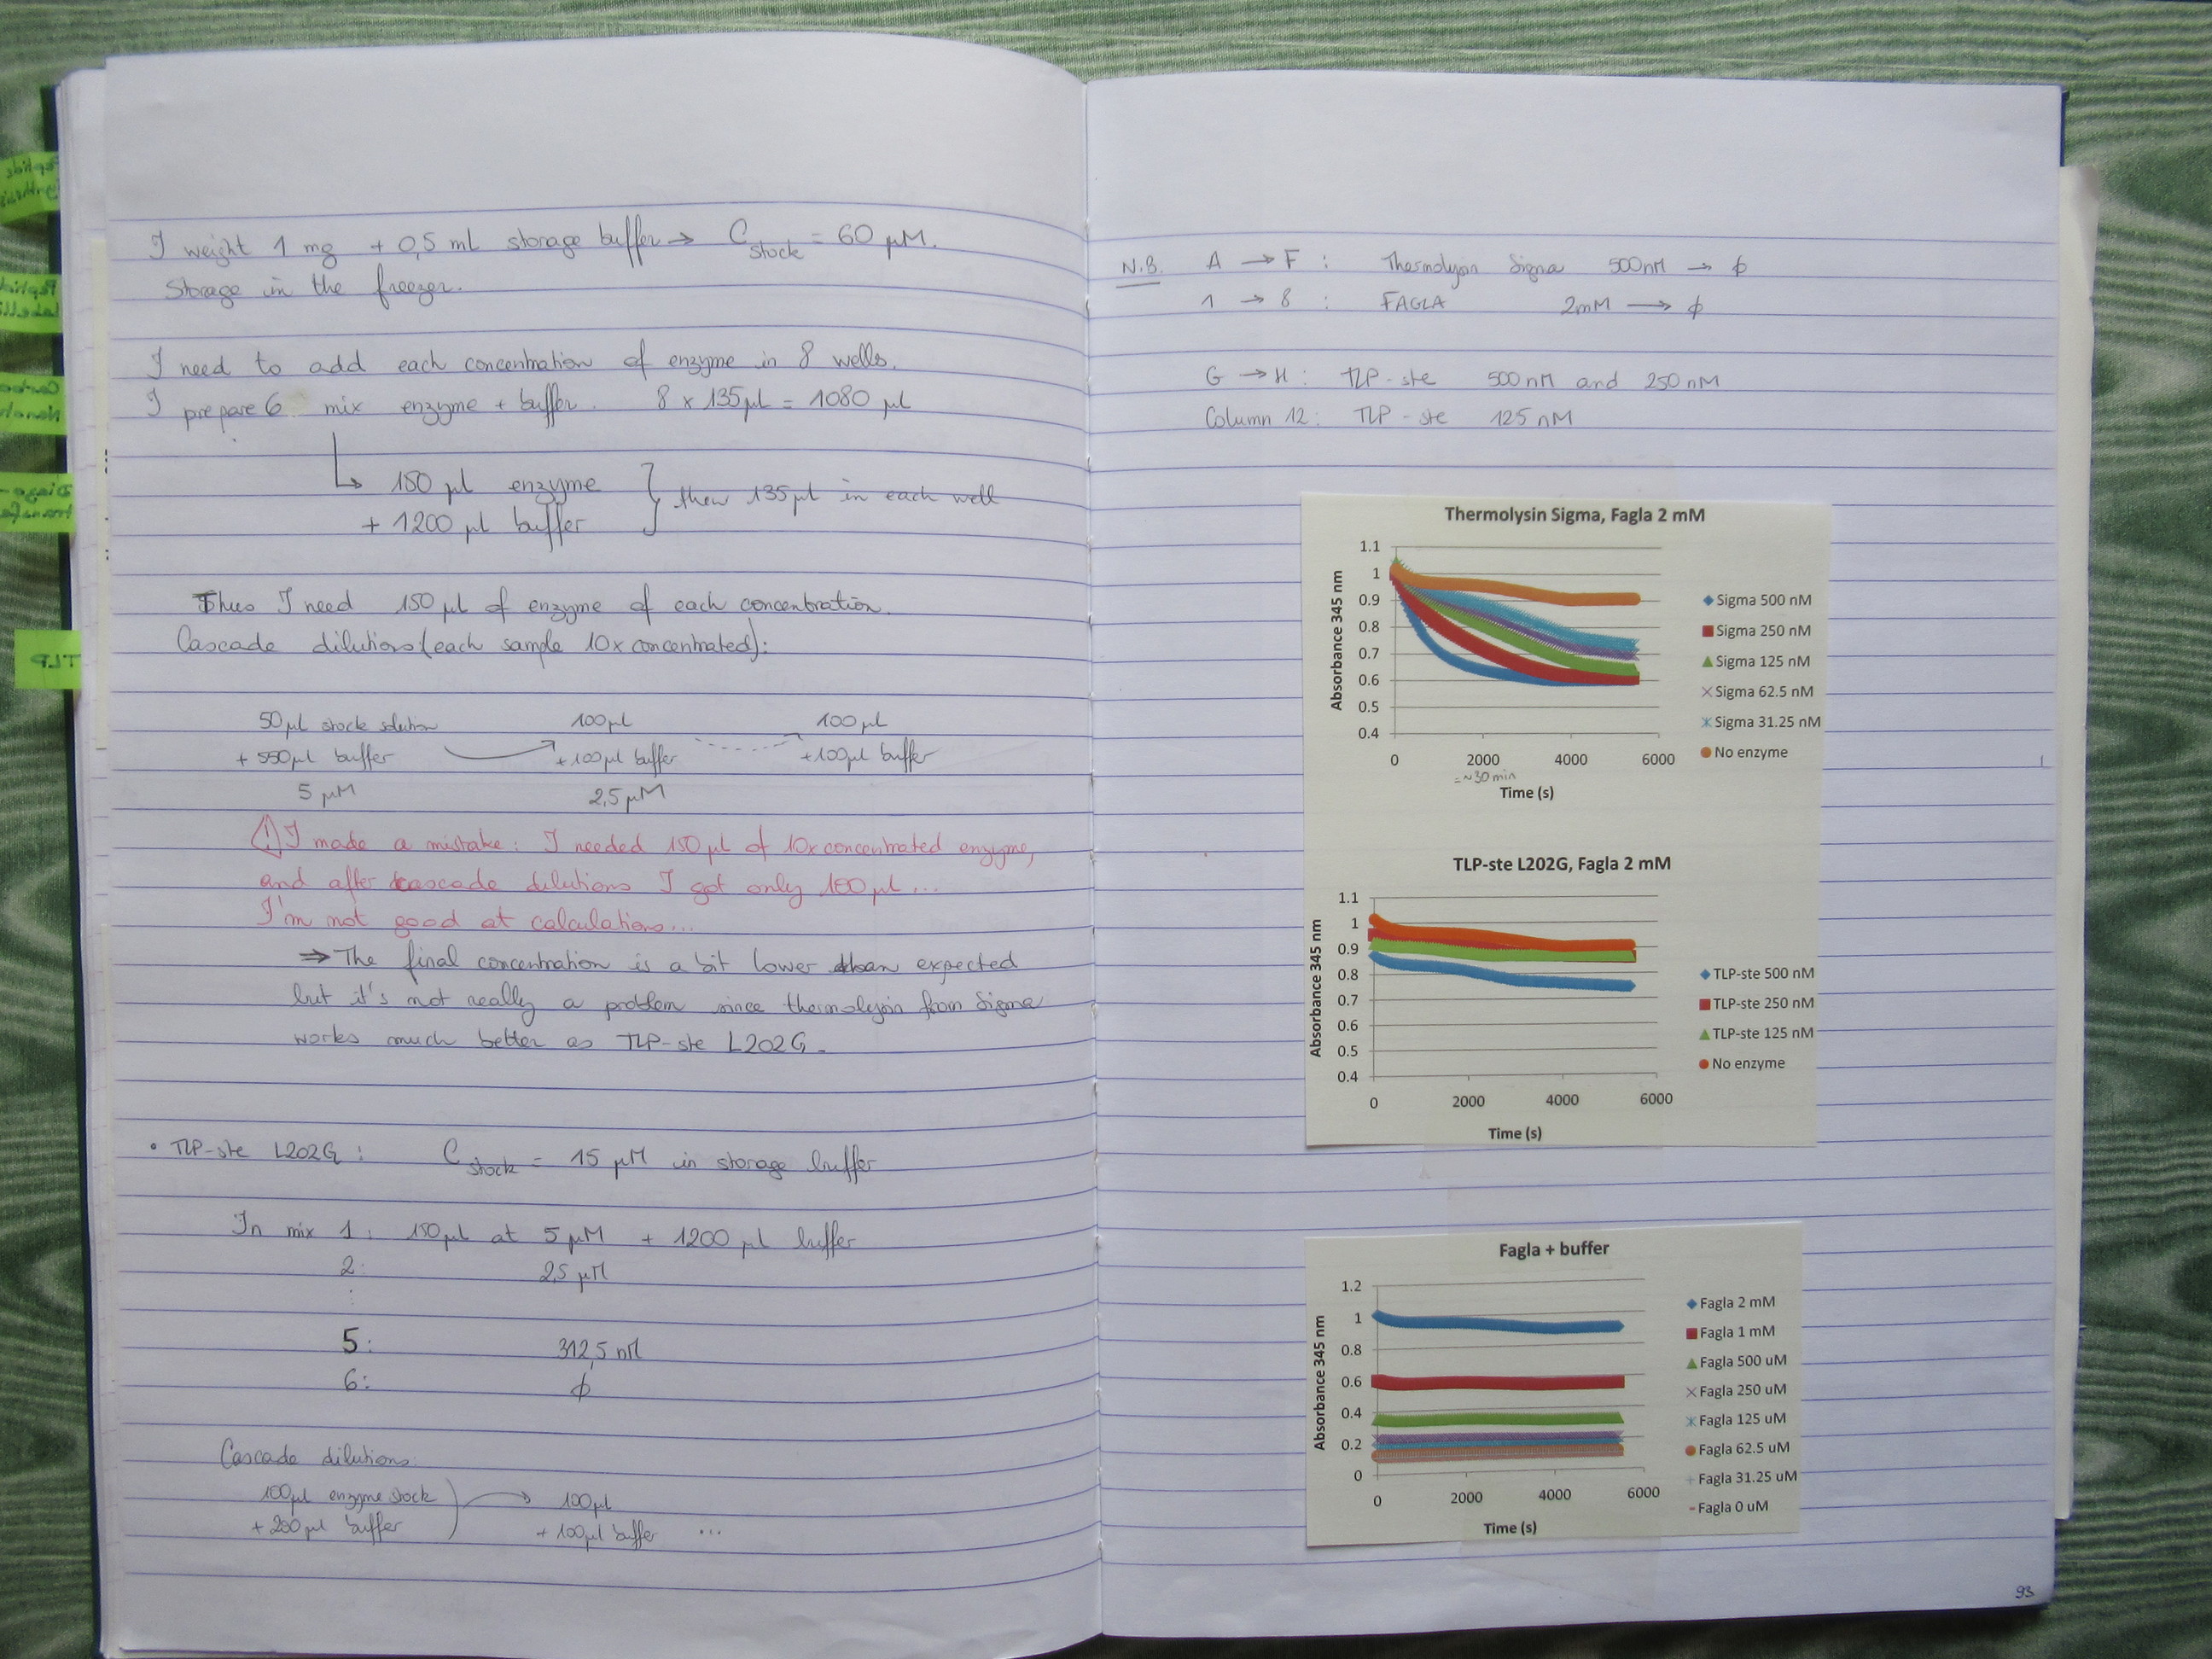 I weight 1 mg + 0,5 mL storage buffer → C stock = 60 µM.
Storage in the freezer.
I need to add each concentration of enzyme in 8 wells.
I prepare 6 mix enzyme + buffer. 8 x 135µl = 1080 µl
↳ 150 µl enzyme
+ 1200 µl buffer } then 135µl in each well
Thus I need 150 µl of enzyme of each concentration.
Cascade dilutions (each sample 10x concentrated):
50µl stock solution 100µl 100µl
+ 550µl buffer +100µl buffer +100µl buffer
5 µM 2,5 µM
! I made a mistake: I needed 150 µl of 10x concentrated enzyme,
and after cascade dilutions I got only 100 µl...
I'm not good at calculations...
⇒ The final concentration is a bit lower than expected
but it's not really a problem since thermolysin from Sigma
works much better as TLP-ste L202G.
• TLP-ste L202G : C stock = 15 µM in storage buffer
In mix 1: 150µl at 5 µM + 1200 µl buffer
2: 2,5 µM
⋮
5: 312,5 nM
6: ϕ
Cascade dilutions:
100µl enzyme stock → 100µl
+ 200µl buffer + 100µl buffer ...
N.B. A → F : Thermolysin Sigma 500nM → ϕ
1 → 8 : FAGLA 2mM → ϕ
G → H : TLP-ste 500nM and 250nM
Column 12: TLP-ste 125nM
Thermolysin Sigma, Fagla 2 mM
Absorbance 345 nm
1.1
1
0.9
0.8
0.7
0.6
0.5
0.4
0 2000 4000 6000
= ~30 min
Time (s)
Sigma 500 nM
Sigma 250 nM
Sigma 125 nM
Sigma 62.5 nM
Sigma 31.25 nM
No enzyme
TLP-ste L202G, Fagla 2 mM
Absorbance 345 nm
1.1
1
0.9
0.8
0.7
0.6
0.5
0.4
0 2000 4000 6000
Time (s)
TLP-ste 500 nM
TLP-ste 250 nM
TLP-ste 125 nM
No enzyme
Fagla + buffer
Absorbance 345 nm
1.2
1
0.8
0.6
0.4
0.2
0
0 2000 4000 6000
Time (s)
Fagla 2 mM
Fagla 1 mM
Fagla 500 uM
Fagla 250 uM
Fagla 125 uM
Fagla 62.5 uM
Fagla 31.25 uM
Fagla 0 uM
93
TLP